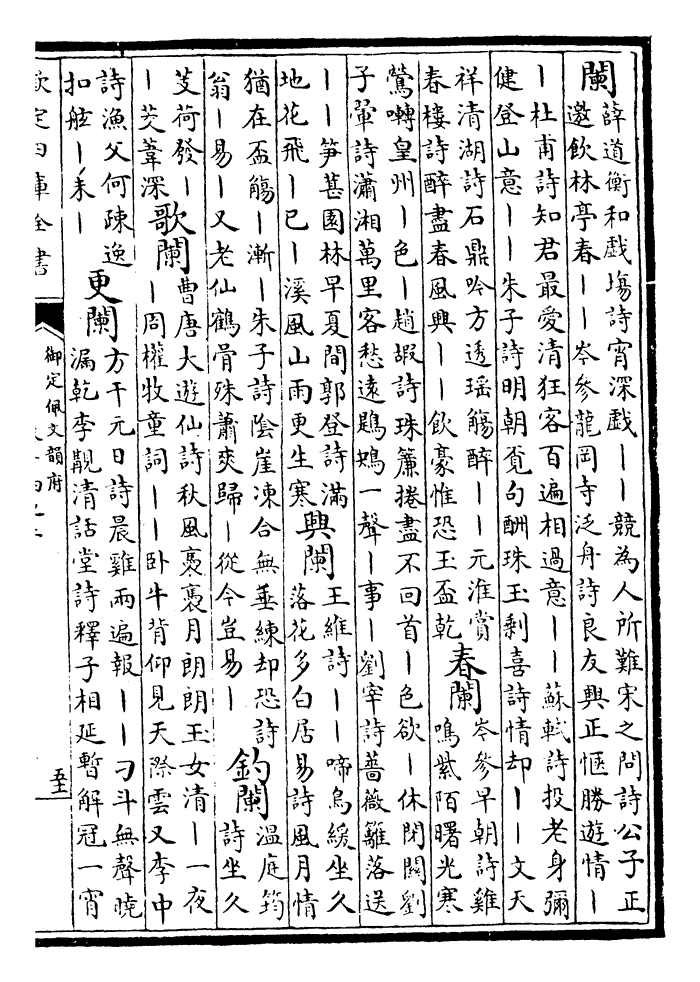 闌薛道衡和戲塲詩宵深戲丨丨競為人所難宋之問詩公子正
邀飲林亭春丨丨岑參龍岡寺泛舟詩良友興正愜勝遊情丨
丨杜甫詩知君最愛清狂客百遍相過意丨丨蘇軾詩投老身彌
健登山意丨丨朱子詩明朝覔句酬珠玉剩喜詩情却丨丨文天
祥清湖詩石鼎吟方透瑶觴醉丨丨元淮賞
春樓詩醉盡春風興丨丨飲豪惟恐玉盃乾
春闌岑參早朝詩雞
鳴紫陌曙光寒
鶯囀皇州丨色丨趙嘏詩珠簾捲盡不回首丨色欲丨休閉關劉
子翬詩瀟湘萬里客愁遠鶗鴂一聲丨事丨劉宰詩薔薇籬落送
丨丨笋葚園林早夏間郭登詩滿
地花飛丨已丨溪風山雨更生寒
興闌王維詩丨丨啼鳥緩坐久
落花多白居易詩風月情
猶在盃觴丨漸丨朱子詩陰崖凍合無垂練却恐詩
翁丨易丨又老仙鶴骨殊蕭爽歸丨從今豈易丨
釣闌溫庭筠
詩坐久
芰荷發丨
丨茭葦深
歌闌曹唐大遊仙詩秋風裊裊月朗朗玉女清丨一夜
丨周權牧童詞丨丨卧牛背仰見天際雲又李中
詩漁父何疎逸
扣舷丨未丨
更闌方干元日詩晨雞兩遍報丨丨刁斗無聲曉
漏乾李觀清話堂詩釋子相延暫解冠一宵
欽定四庫全書
御定佩文韻府